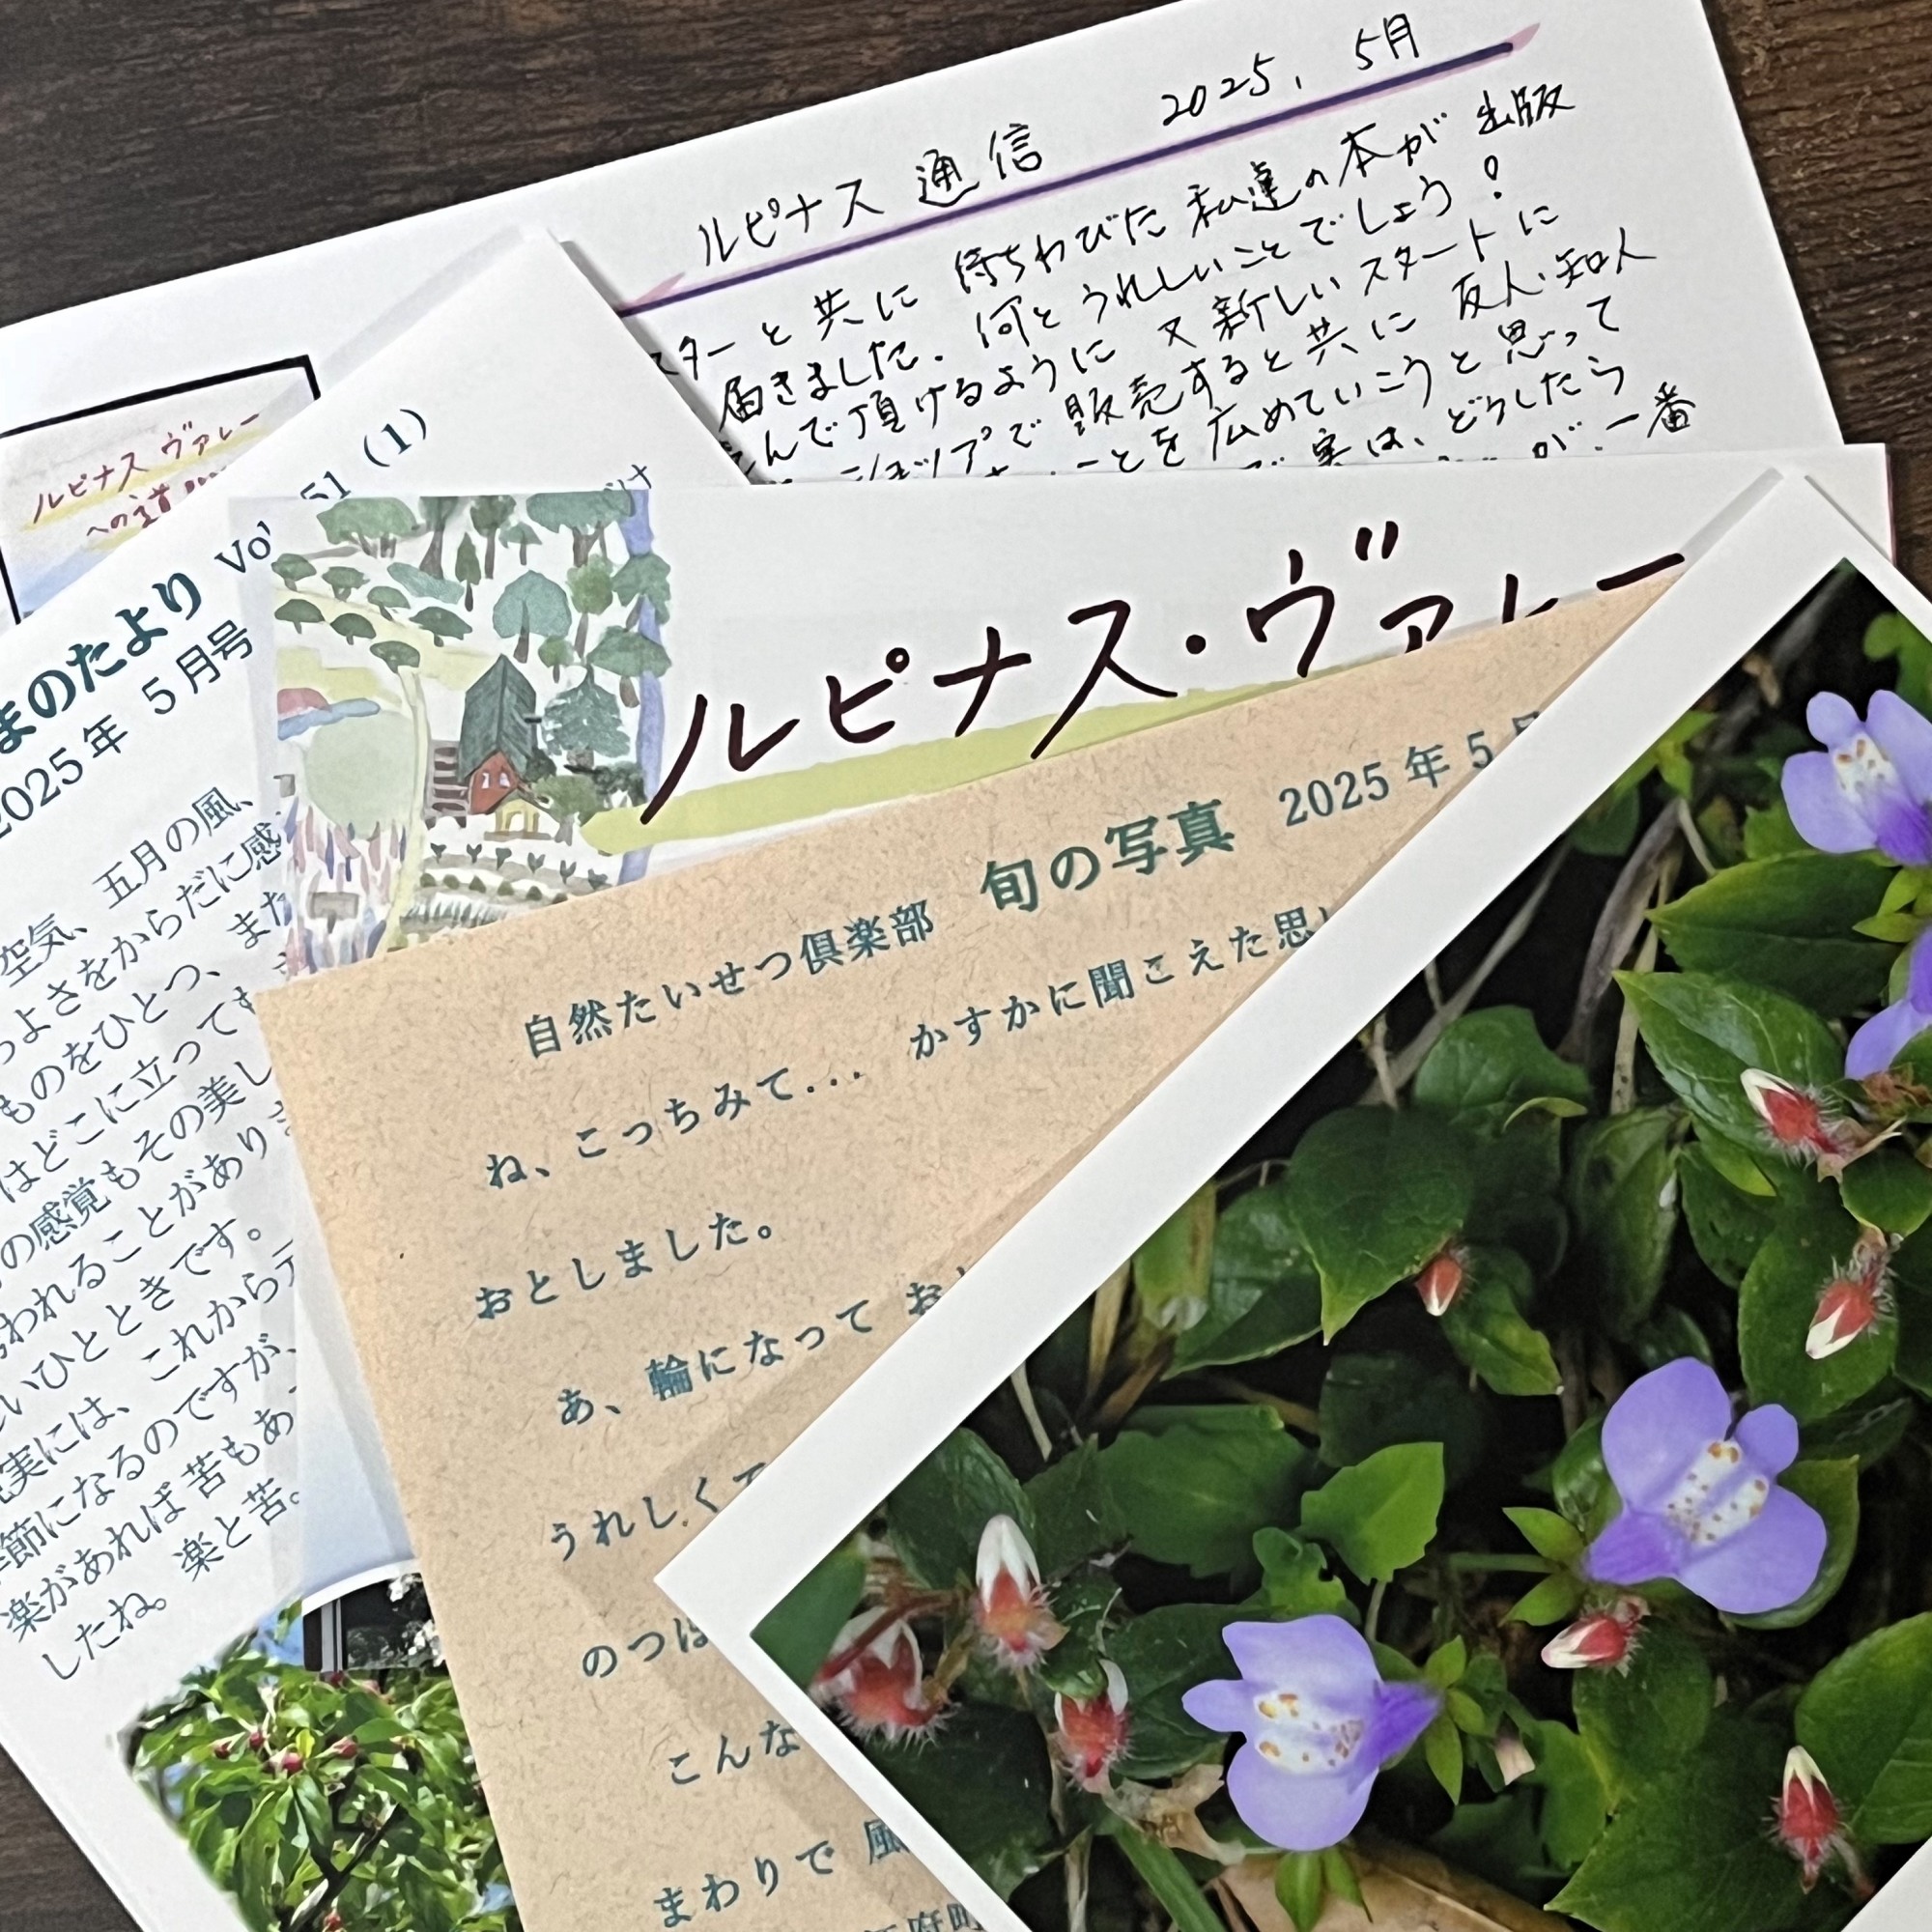 2025. 5月
ルピナス 通信
スターと 共に 待ちわびた 私達の本が 出版
届きました. 何と うれしいことでしょう!
んで 頂けるように 又 新しい スタートに
ショップで 販売すると共に 友人・知人
ことを 広めていこうと 思って
実は、どうしたら
が、一番
ルピナス ヴァレー
への道
Vol 51 (1)
まのたより
2025年 5月号
五月の風、
空気、
よさをからだに感
ものをひとつ、また
はどこに立って
の感覚もその美し
われることがあり
いひとときです。
実には、これから
季節になるのですが、
楽があれば苦もあ
したね。楽と苦。
ルピナス・ヴァレー
自然たいせつ倶楽部 旬の写真 2025年5月
ね、こっちみて... かすかに聞こえた思い
おとしました。
あ、輪になって お
うれしくて
のつぼ
こんな
まわりで 風